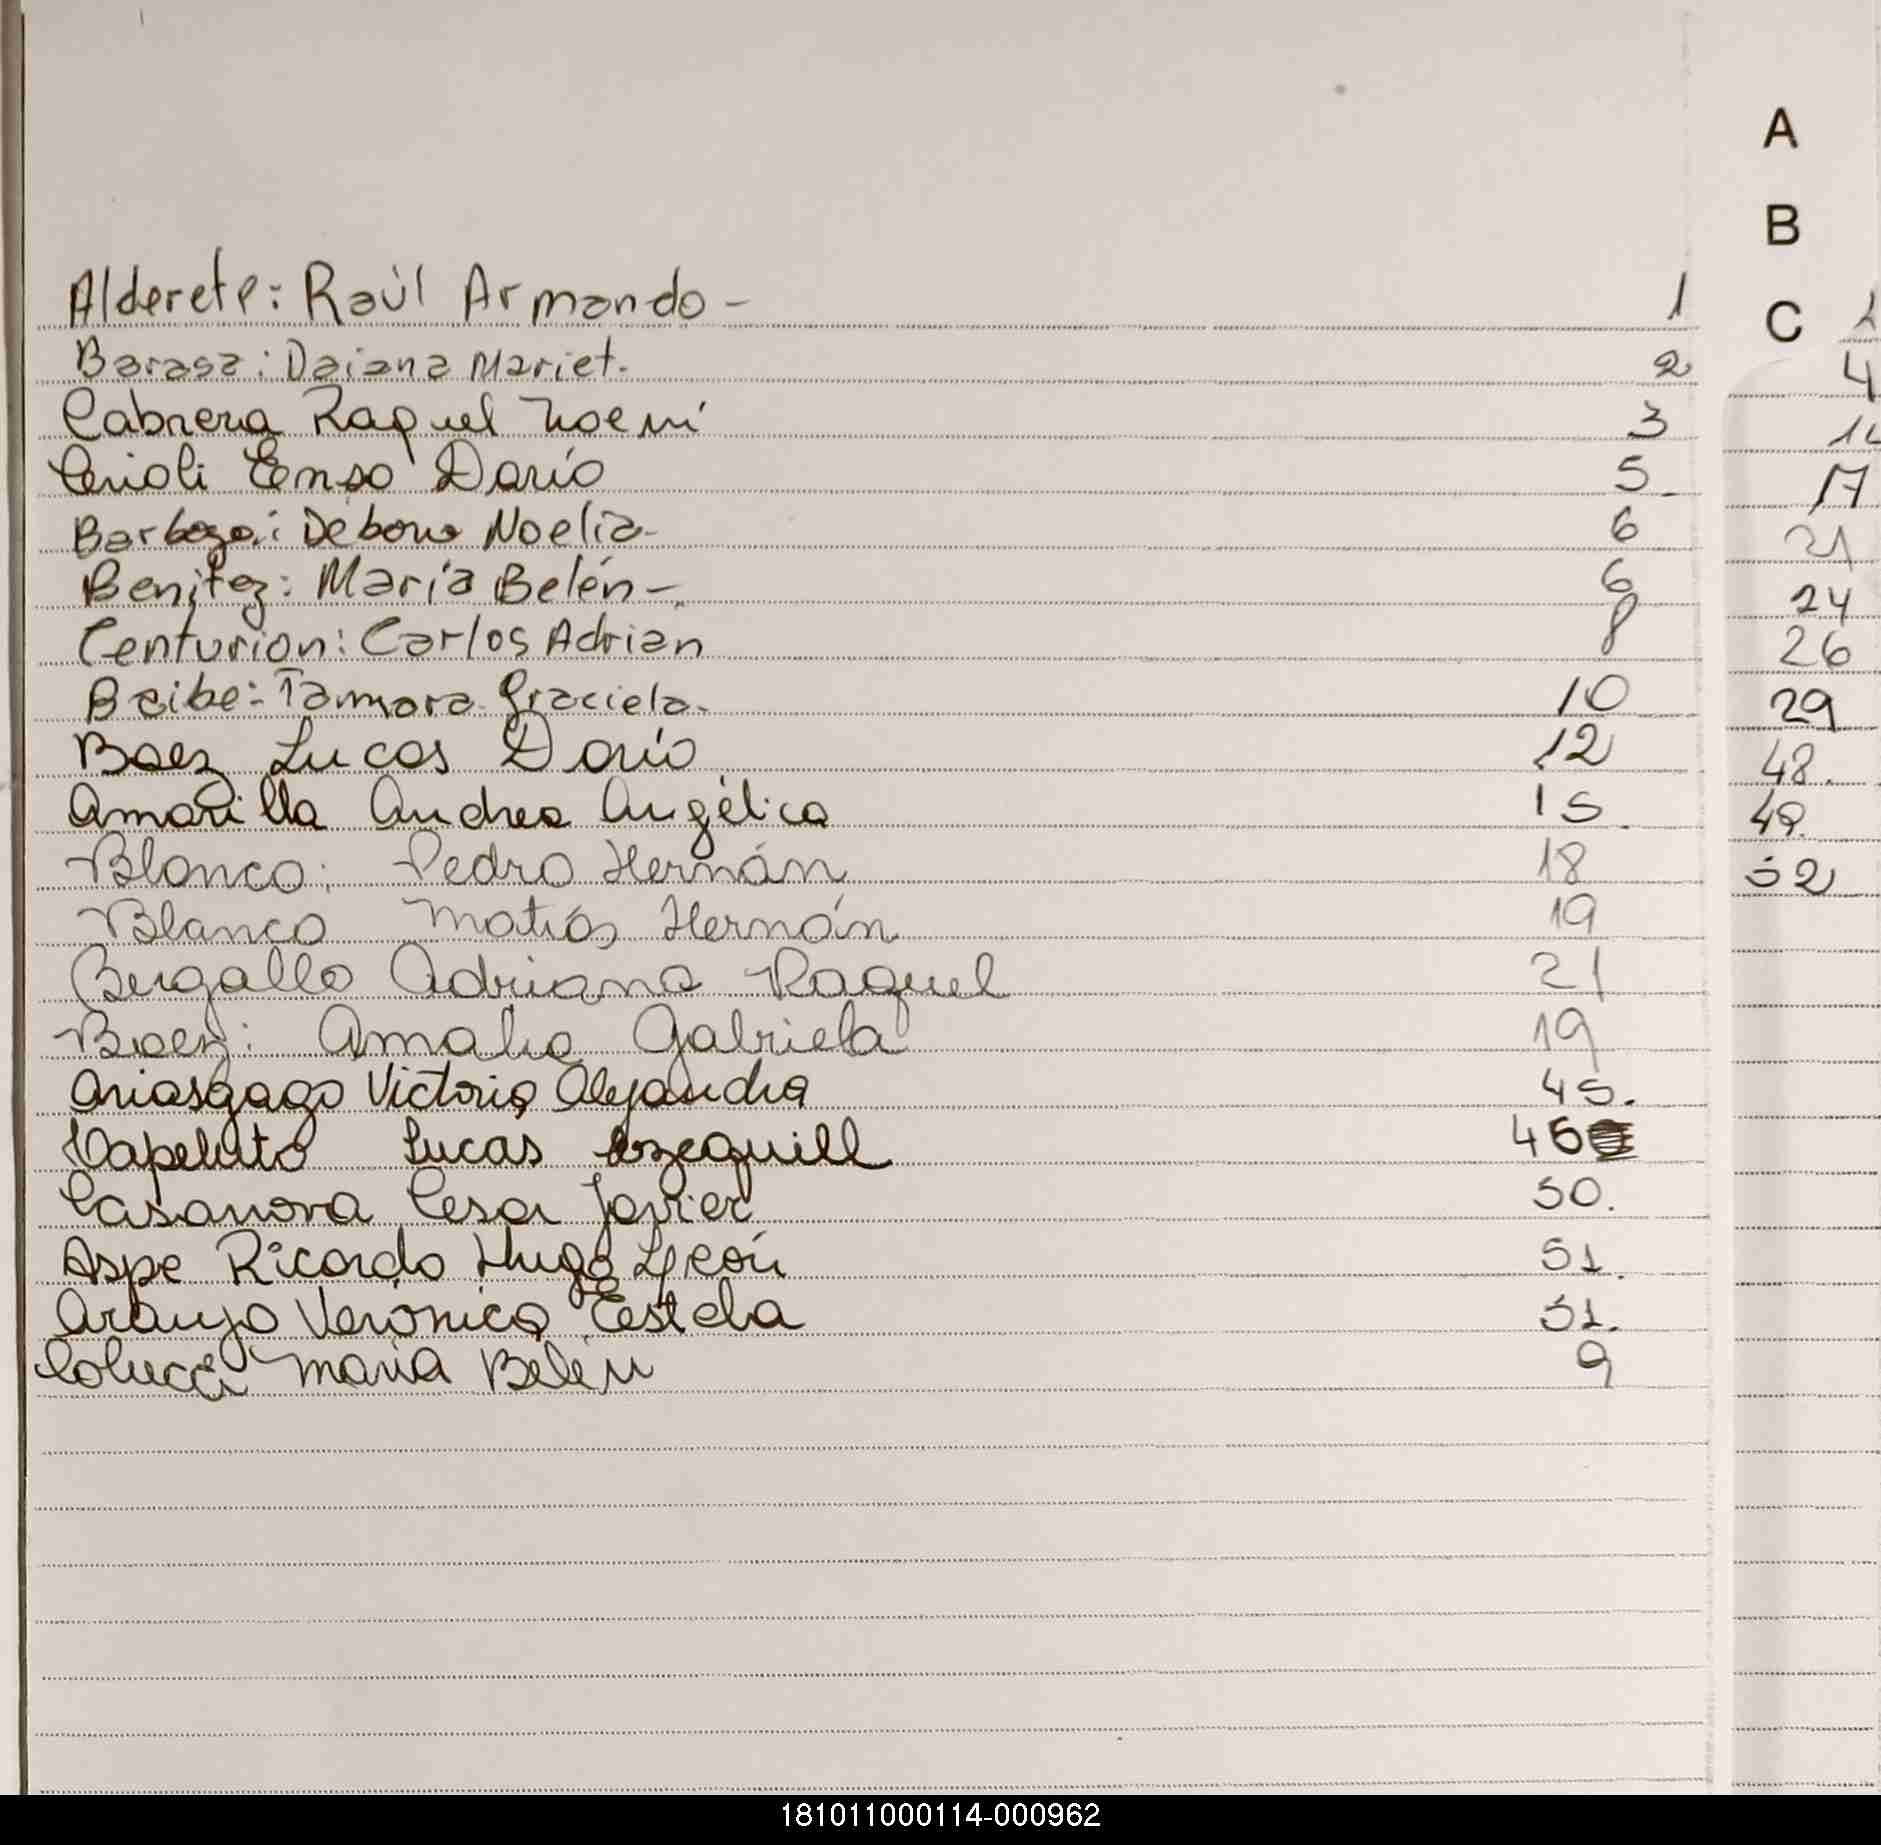 Alderete: Raúl Armando - 1
Barasa: Daiana Mariet. 2
Cabrera Raquel Noemí 3
Cerioli Enso Darío 5.
Barboza: Debora Noelia- 6
Benitez: María Belén- 6
Centurion: Carlos Adrian 8
Beibe: Tamara Graciela. 10
Baez Lucas Darío 12
Amarilla Andrea Angélica 15.
Blanco: Pedro Hernán 18
Blanco Matías Hernán 19
Bergallo Adriana Raquel 21
Baez: Amalia Gabriela 19
Ariasgago Victoria Alejandra 45.
Capeluto Lucas 46
Casanova Cesar Javier 50.
Aspe Ricardo Hugo León 51.
Araujo Verónica Estela 51.
Colucci María Belén 9
A
B
C
4
17
21
24
26
29
48.
49.
52
181011000114-000962